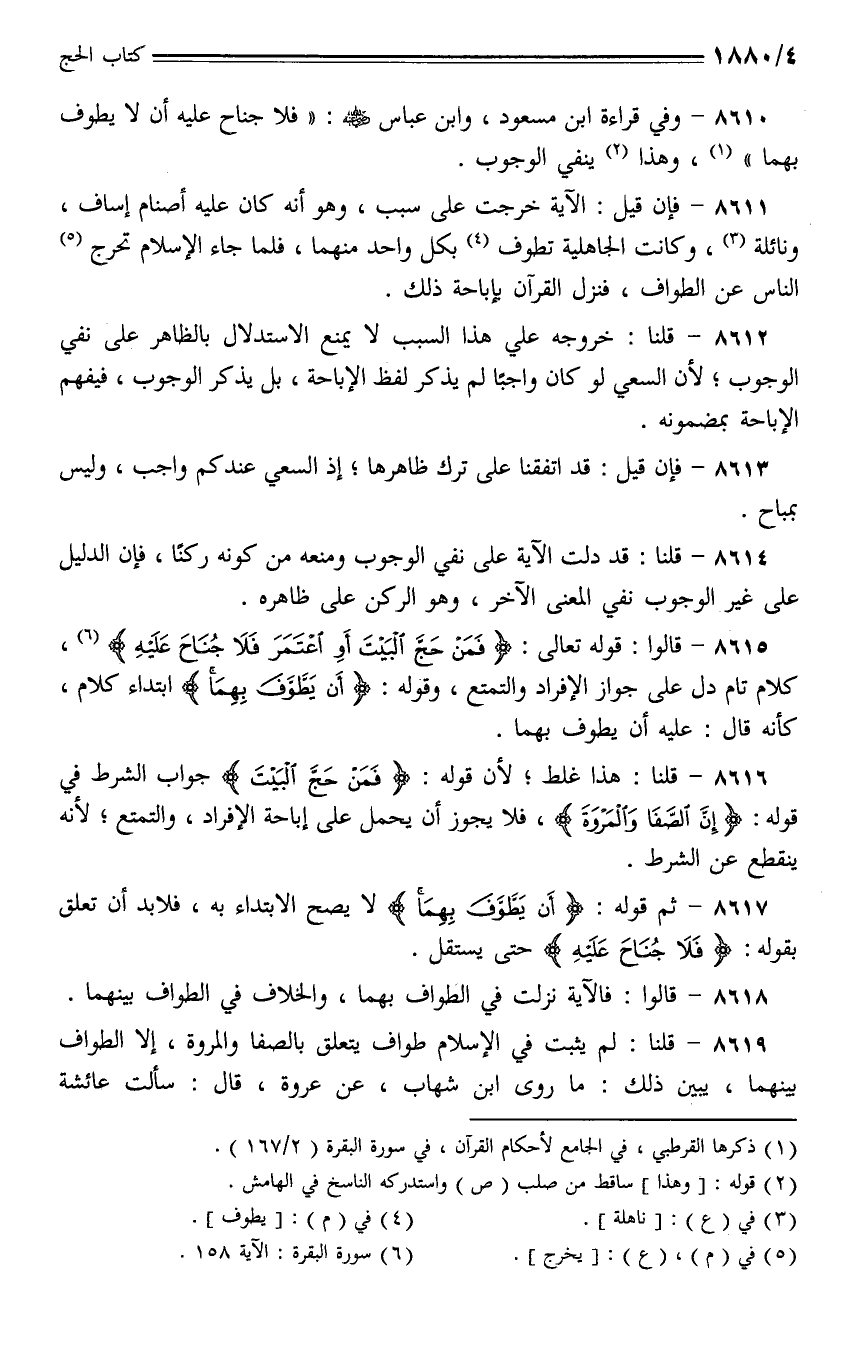 ١٨٨٠/٤ كتاب الحج
٨٦١٠ - وفي قراءة ابن مسعود ، وابن عباس ﷺ : « فلا جناح عليه أن لا يطوف
بهما » (١) ، وهذا (٢) ينفي الوجوب .
٨٦١١ - فإن قيل : الآية خرجت على سبب ، وهو أنه كان عليه أصنام إساف ،
ونائلة (٣) ، وكانت الجاهلية تطوف (٤) بكل واحد منهما ، فلما جاء الإسلام تحرج (٥)
الناس عن الطواف ، فنزل القرآن بإباحة ذلك .
٨٦١٢ - قلنا : خروجه علي هذا السبب لا يمنع الاستدلال بالظاهر على نفي
الوجوب ؛ لأن السعي لو كان واجبًا لم يذكر لفظ الإباحة ، بل يذكر الوجوب ، فيفهم
الإباحة بمضمونه .
٨٦١٣ - فإن قيل : قد اتفقنا على ترك ظاهرها ؛ إذ السعي عندكم واجب ، وليس
بمباح .
٨٦١٤ - قلنا : قد دلت الآية على نفي الوجوب ومنعه من كونه ركنًا ، فإن الدليل
على غير الوجوب نفي المعنى الآخر ، وهو الركن على ظاهره .
٨٦١٥ - قالوا : قوله تعالى : ﴿ فَمَنْ حَجَّ ٱلْبَيْتَ أَوِ ٱعْتَمَرَ فَلَا جُنَاحَ عَلَيْهِ ﴾ (٦) ،
كلام تام دل على جواز الإفراد والتمتع ، وقوله : ﴿ أَن يَطَّوَّفَ بِهِمَاۚ ﴾ ابتداء كلام ،
كأنه قال : عليه أن يطوف بهما .
٨٦١٦ - قلنا : هذا غلط ؛ لأن قوله : ﴿ فَمَنْ حَجَّ ٱلْبَيْتَ ﴾ جواب الشرط في
قوله : ﴿ إِنَّ ٱلصَّفَا وَٱلْمَرْوَةَ ﴾ ، فلا يجوز أن يحمل على إباحة الإفراد ، والتمتع ؛ لأنه
ينقطع عن الشرط .
٨٦١٧ - ثم قوله : ﴿ أَن يَطَّوَّفَ بِهِمَاۚ ﴾ لا يصح الابتداء به ، فلابد أن تعلق
بقوله : ﴿ فَلَا جُنَاحَ عَلَيْهِ ﴾ حتى يستقل .
٨٦١٨ - قالوا : فالآية نزلت في الطواف بهما ، والخلاف في الطواف بينهما .
٨٦١٩ - قلنا : لم يثبت في الإسلام طواف يتعلق بالصفا والمروة ، إلا الطواف
بينهما ، يبين ذلك : ما روى ابن شهاب ، عن عروة ، قال : سألت عائشة
(١) ذكرها القرطبي ، في الجامع لأحكام القرآن ، في سورة البقرة ( ١٦٧/٢ ) .
(٢) قوله : [ وهذا ] ساقط من صلب ( ص ) واستدركه الناسخ في الهامش .
(٣) في ( ع ) : [ ناهلة ] . (٤) في ( م ) : [ يطوف ] .
(٥) في ( م ) ، ( ع ) : [ يخرج ] . (٦) سورة البقرة : الآية ١٥٨ .